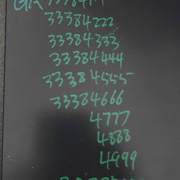 33384222
33384333
33384444
33384555
33384666
4777
4888
4999